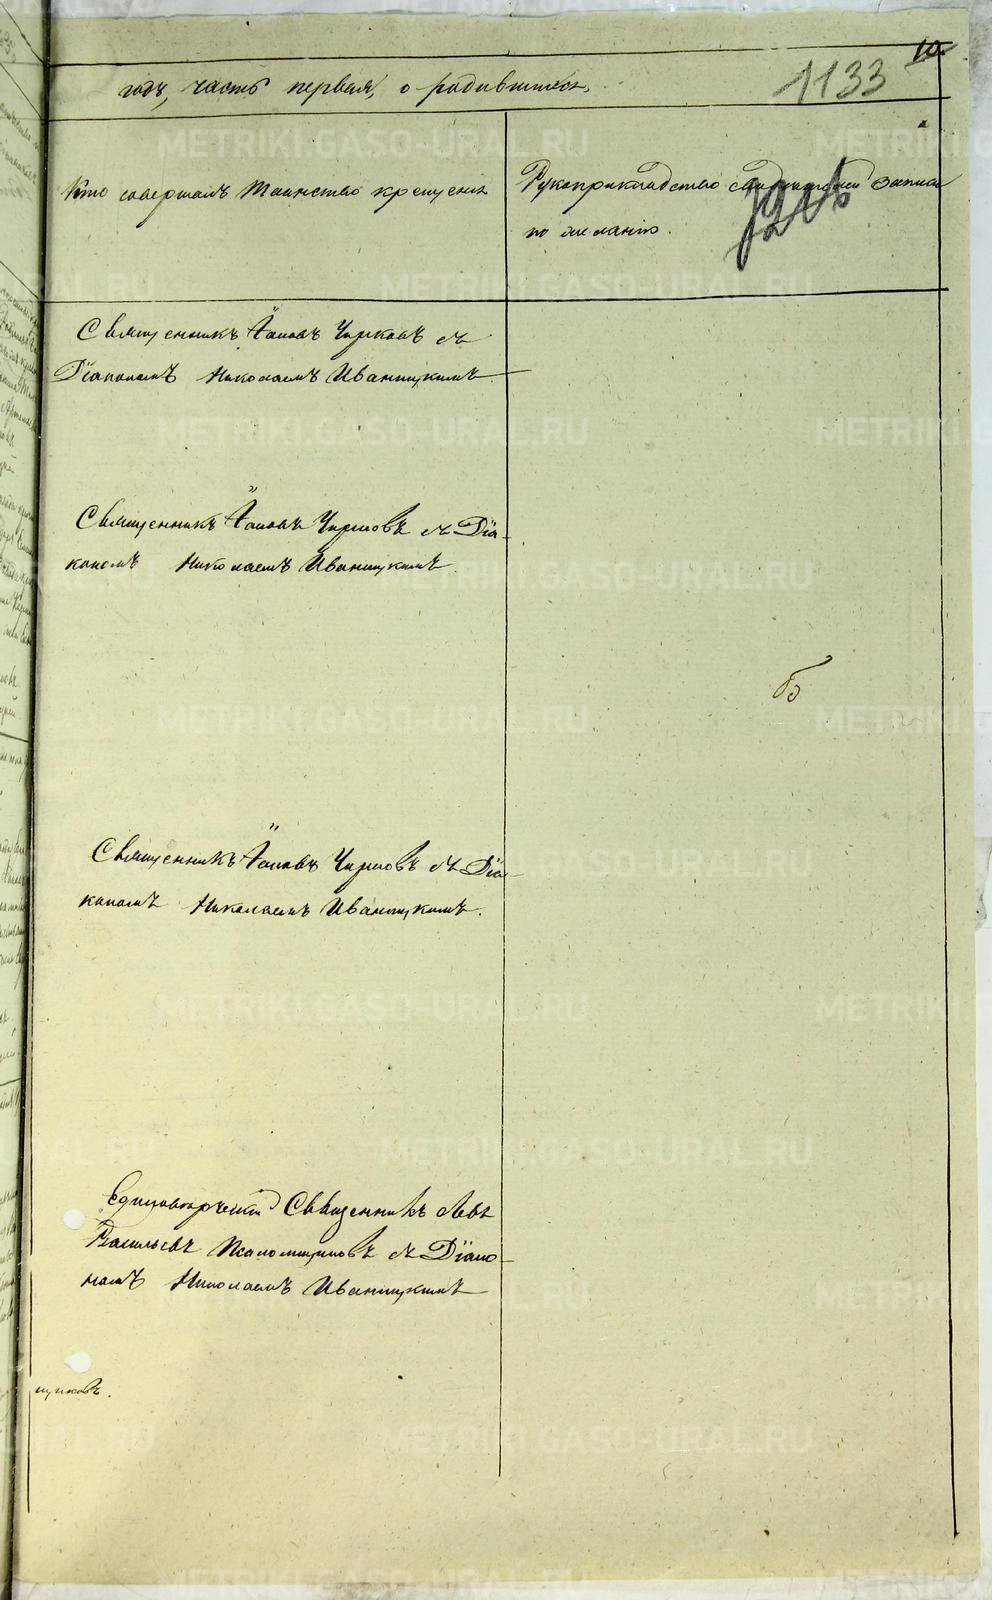 10.
1133
годъ, часть первая, о родившихся.
Кто совершалъ Таинство крещенія
Рукоприкладство свидѣтелей записи
по желанію.
Священникъ Іоаннъ Чирковъ съ
Діакономъ Николаемъ Иваницкимъ.
Священникъ Іоаннъ Чирковъ съ Діа-
кономъ Николаемъ Иваницкимъ
Б
Священникъ Іоаннъ Чирковъ съ Діа-
кономъ Николаемъ Иваницкимъ.
Единовѣрческій Священникъ Левъ
Васильевъ съ Діако-
номъ Николаемъ Иваницкимъ
METRIKI.GASO-URAL.RU